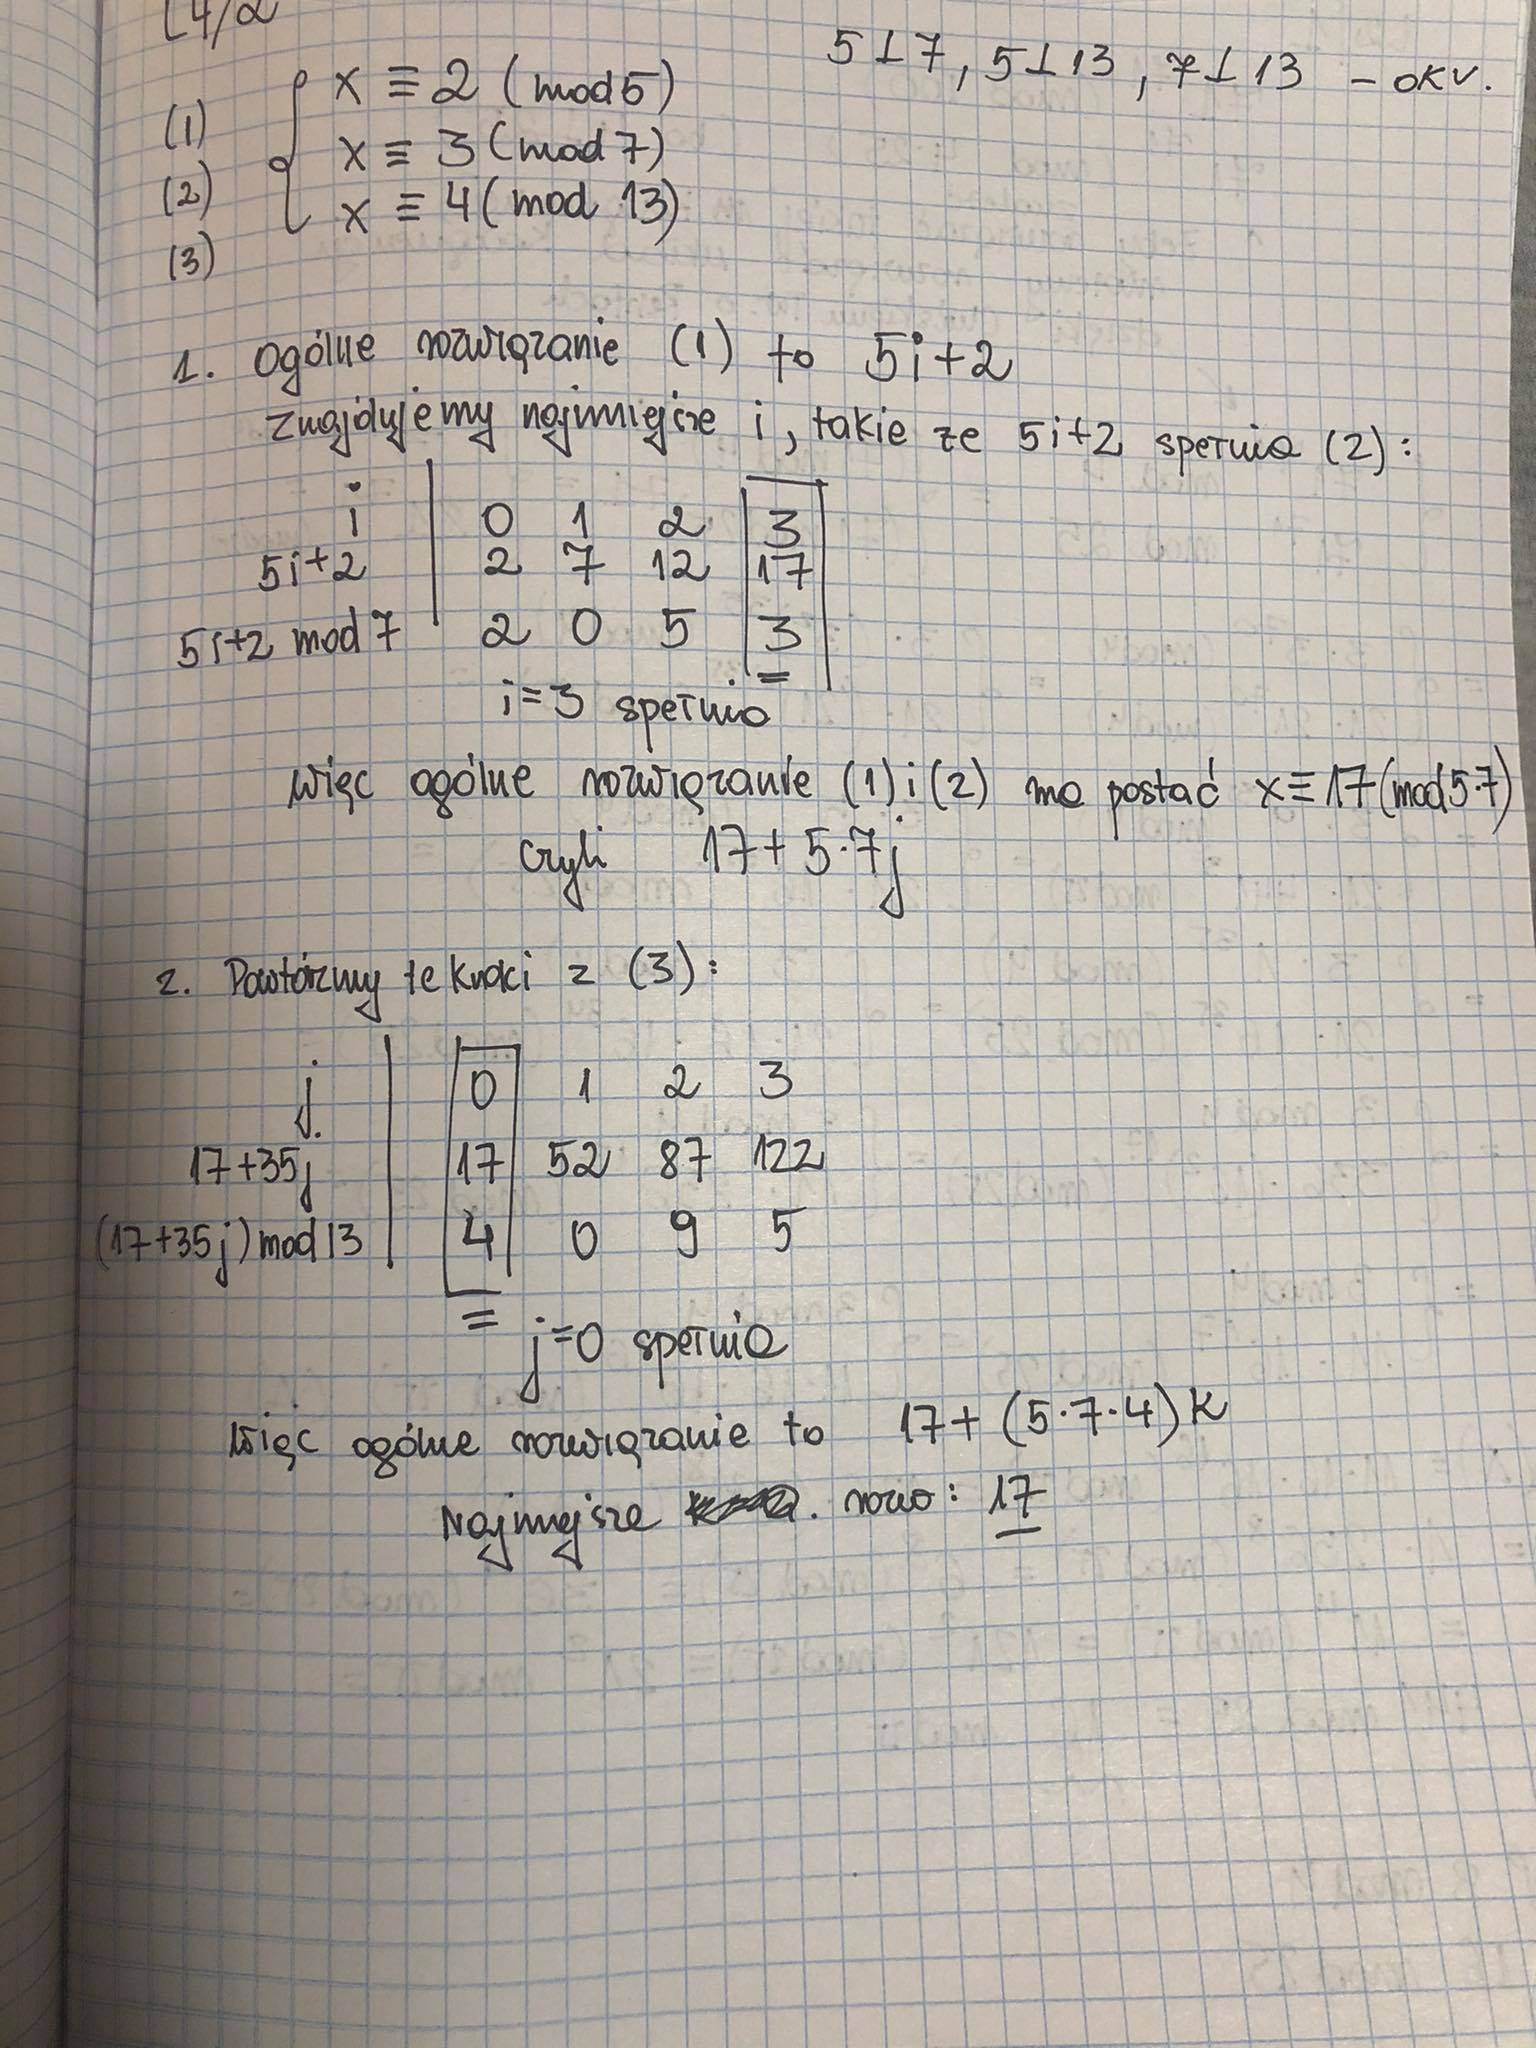 L4/2
5⊥7, 5⊥13, 7⊥13 - okv.
(1) x ≡ 2 (mod 5)
(2) x ≡ 3 (mod 7)
(3) x ≡ 4 (mod 13)
1. Ogólne rozwiązanie (1) to 5i+2
znajdujemy najmniejsze i, takie ze 5i+2 spełnia (2):
i | 0 1 2 3
5i+2 | 2 7 12 17
5i+2 mod 7 | 2 0 5 3
i=3 spełnia
więc ogólne rozwiązanie (1) i (2) ma postać x ≡ 17 (mod 5·7)
czyli 17 + 5·7j
2. Powtórzmy te kroki z (3):
j | 0 1 2 3
17+35j | 17 52 87 122
(17+35j) mod 13 | 4 0 9 5
j=0 spełnia
Więc ogólne rozwiązanie to 17 + (5·7·4)k
Najmniejsze rozw: 17